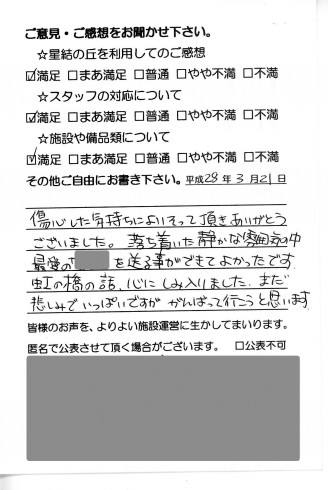 ご意見・ご感想をお聞かせ下さい。
☆星結の丘を利用してのご感想
☑満足 □まあ満足 □普通 □やや不満 □不満
☆スタッフの対応について
☑満足 □まあ満足 □普通 □やや不満 □不満
☆施設や備品類について
☑満足 □まあ満足 □普通 □やや不満 □不満
その他ご自由にお書き下さい。平成28年3月21日
傷心した気持ちによりそって頂きありがとう
ございました。落ち着いた静かな雰囲気の中
最愛の を送る事ができてよかったです
虹の橋の話、心にしみ入りました。まだ
悲しみでいっぱいですが がんばって行こうと思います
皆様のお声を、よりよい施設運営に生かしてまいります。
匿名で公表させて頂く場合がございます。 □公表不可